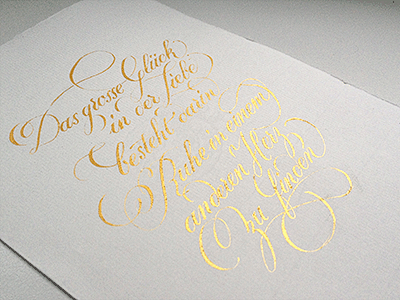 Das grosse Glück
in der Liebe
besteht darin,
Ruhe in einem
anderen Herz
zu finden